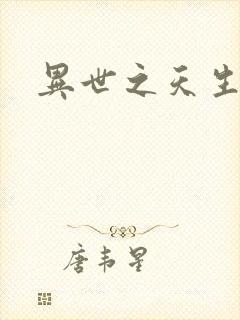 異世之天生
唐韦星